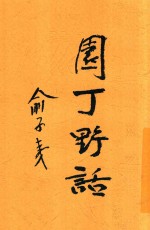 園丁野話
俞子夷